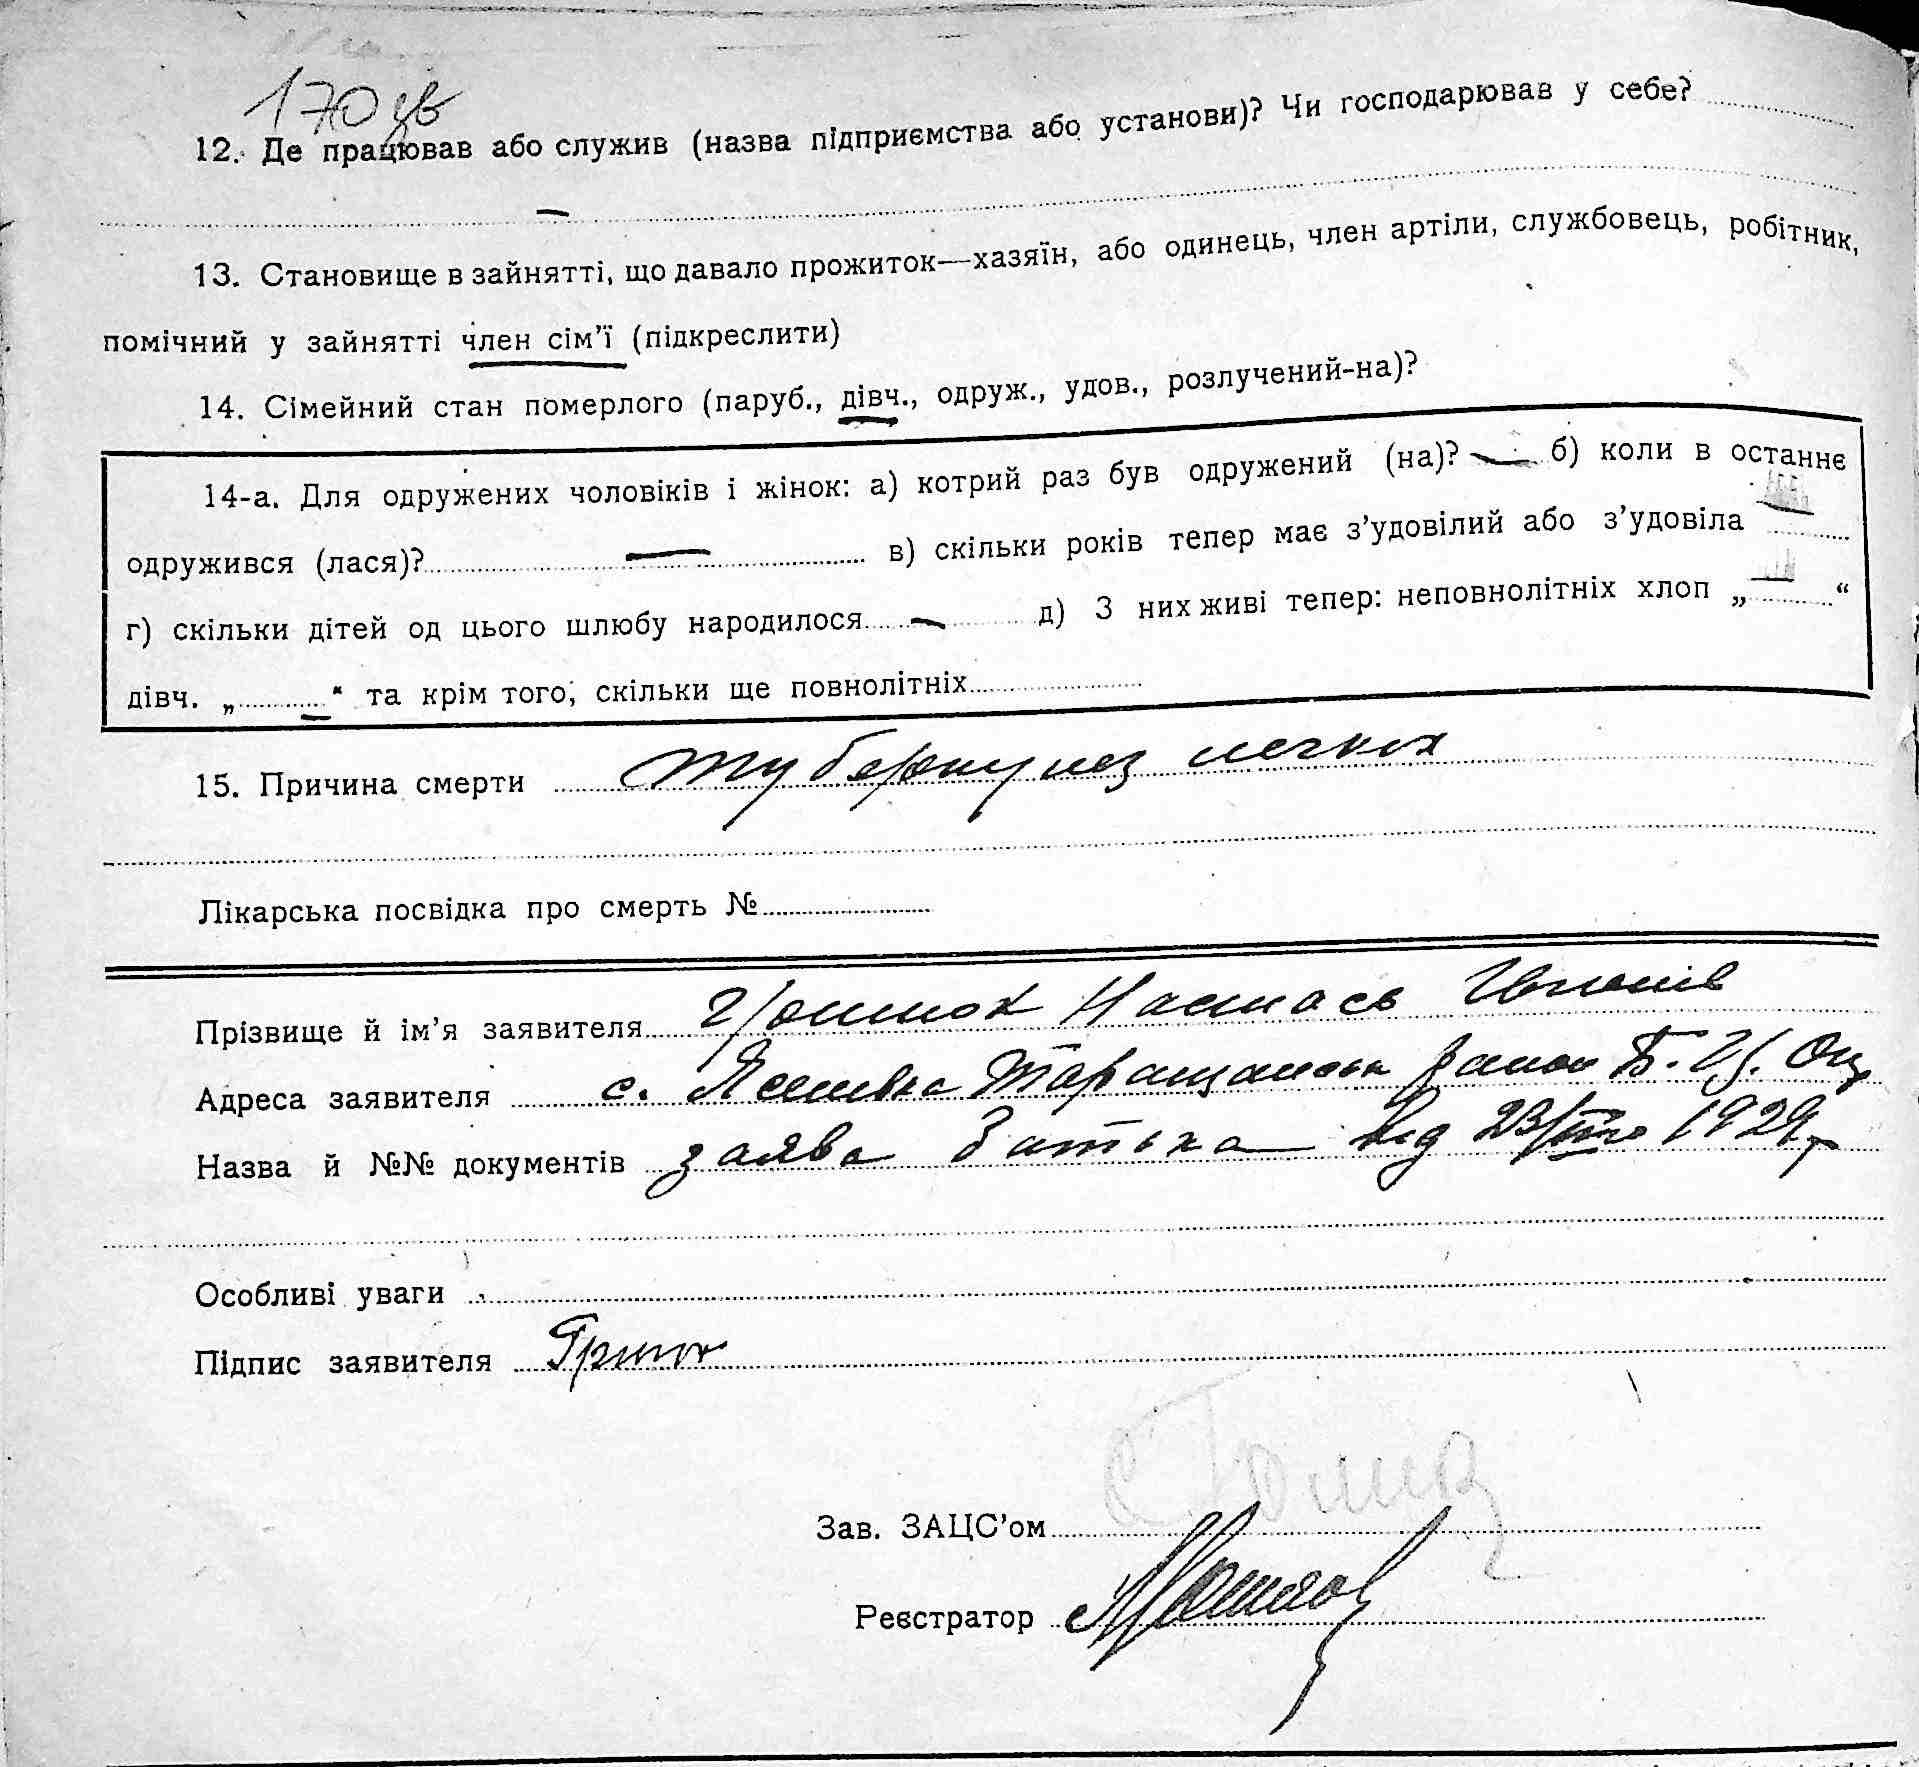 170 зв
12. Де працював або служив (назва підприємства або установи)? Чи господарював у себе?
—
13. Становище в зайнятті, що давало прожиток—хазяїн, або одинець, член артіли, службовець, робітник,
помічний у зайнятті член сім’ї (підкреслити)
14. Сімейний стан померлого (паруб., дівч., одруж., удов., розлучений-на)?
14-а. Для одружених чоловіків і жінок: а) котрий раз був одружений (на)? — б) коли в останнє
одружився (лася)? — в) скільки років тепер має з’удовілий або з’удовіла —
г) скільки дітей од цього шлюбу народилося — д) З них живі тепер: неповнолітніх хлоп „—“
дівч. „—“ та крім того, скільки ще повнолітніх
15. Причина смерти туберкулез легких
Лікарська посвідка про смерть №
Прізвище й ім’я заявителя
Адреса заявителя с. район Б. Ц. Окр
Назва й №№ документів заява батька від 23/ 1929 р
Особливі уваги
Підпис заявителя
Зав. ЗАЦС’ом
Реєстратор